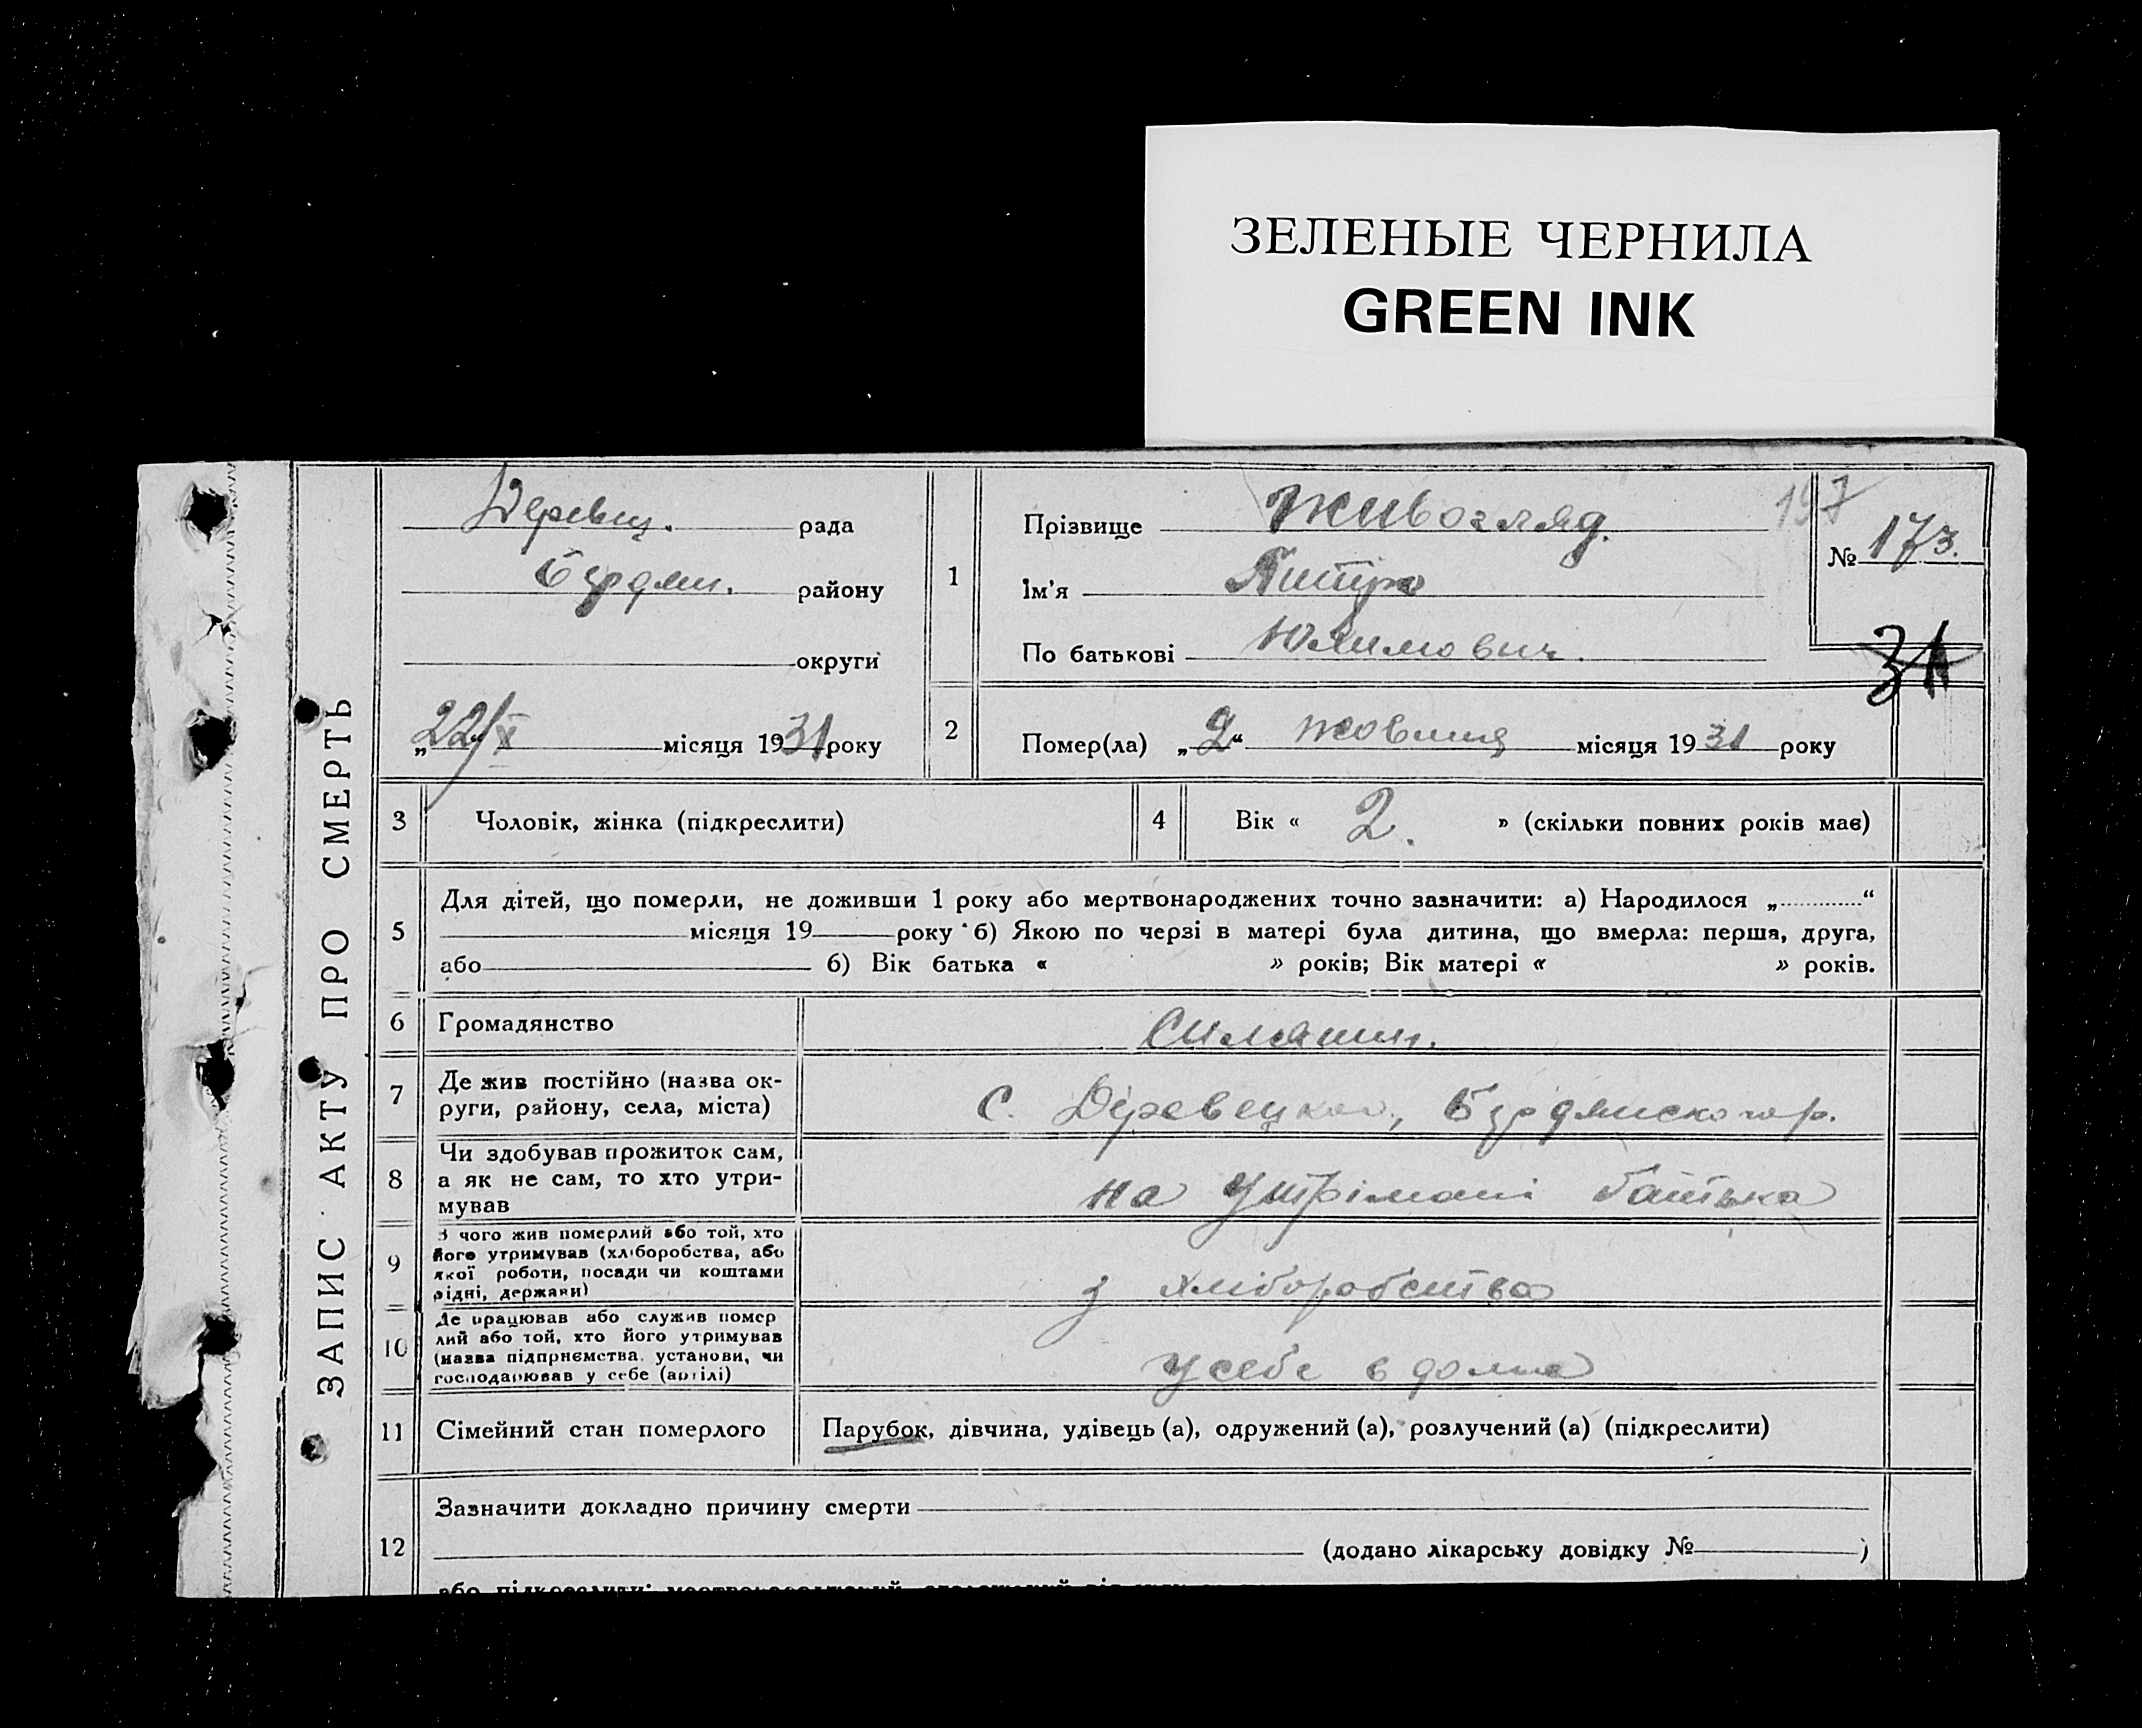 ЗЕЛЕНЫЕ ЧЕРНИЛА
GREEN INK
ЗАПИС АКТУ ПРО СМЕРТЬ
Деревец. рада
району
округи
„22/X місяця 1931 року
197
№ 173.
31
1
Прізвище Живогляд.
Ім'я Питро
По батькові Юхимович.
2 Помер(ла) „2“ жовтня місяця 1931 року
3 Чоловік, жінка (підкреслити)
4 Вік « 2. » (скільки повних років має)
5 Для дітей, що померли, не доживши 1 року або мертвонароджених точно зазначити: а) Народилося „ “
місяця 19 року б) Якою по черзі в матері була дитина, що вмерла: перша, друга,
або б) Вік батька « » років; Вік матері « » років.
6 Громадянство Силянин.
7 Де жив постійно (назва ок-
руги, району, села, міста)
с.
8 Чи здобував прожиток сам,
а як не сам, то хто утри-
мував
на утрімані батька
9 З чого жив померлий або той, хто
його утримував (хліборобства, або
якої роботи, посади чи коштами
рідні, держави)
з хліборобства
10 Де працював або служив помер
лий або той, хто його утримував
(назва підприємства, установи, чи
господарював у себе (артілі)
у себе в дома
11 Сімейний стан померлого Парубок, дівчина, удівець (а), одружений (а), розлучений (а) (підкреслити)
12 Зазначити докладно причину смерти
(додано лікарську довідку № )